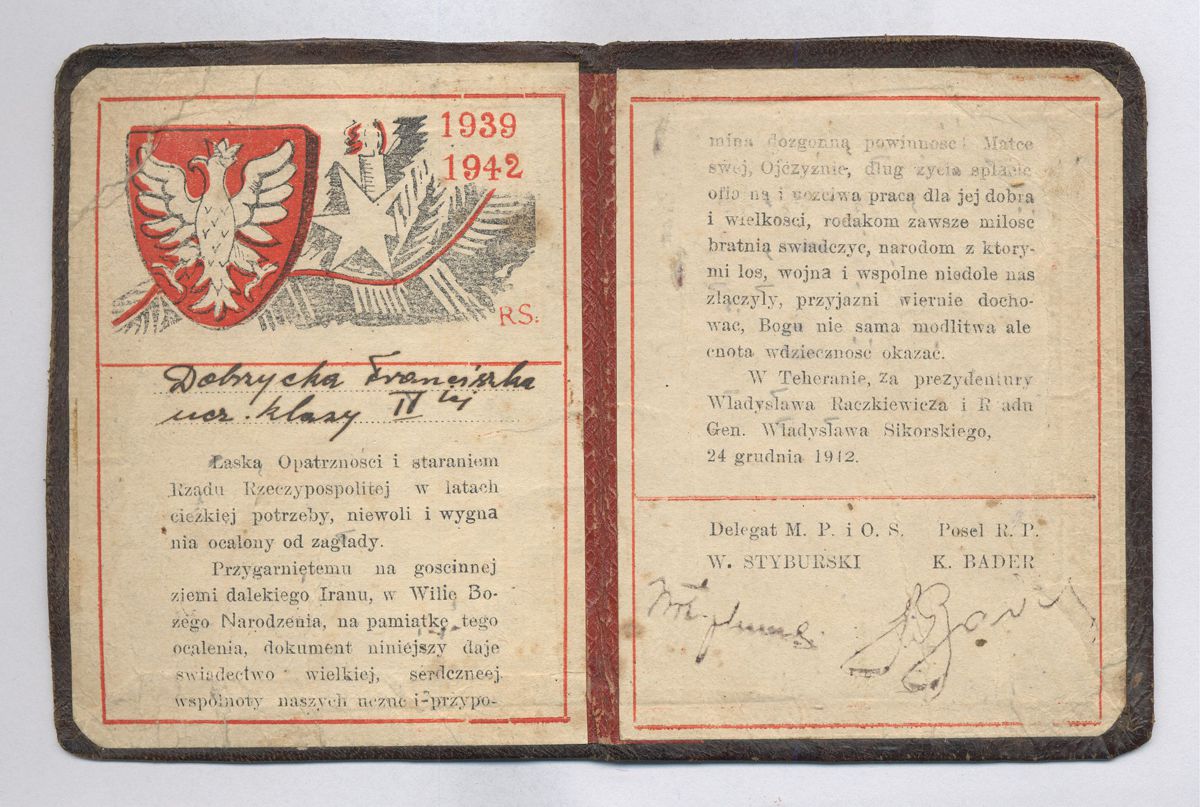 1939
1942
RS:
Dobrycka Franciszka
ucz. klasy IV tej
Łaską Opatrznosci i staraniem
Rządu Rzeczypospolitej w latach
ciezkięj potrzeby, niewoli i wygna
nia ocalony od zagłady.
Przygarniętemu na goscinnej
ziemi dalekiego Iranu, w Wilie Bo-
zego Narodzenia, na pamiatkę tego
ocalenia, dokument niniejszy daje
swiadectwo wielkiej, serdczneej
wspólnoty naszych uczuc i przypo-
mina dozgonną powinnosc Matce
swej, Ojczyznie, dług zycia spłacic
ofia ną i uczciwa pracą dla jej dobra
i wielkosci, rodakom zawsze milosc
bratnią swiadczyc, narodom z ktory-
mi los, wojna i wspolne niedole nas
złączyły, przyjazni wiernie docho-
wac, Bogu nie sama modlitwa ale
cnota wdziecznosc okazać.
W Teheranie, za prezydentury
Władysława Raczkiewicza i R adu
Gen. Władysława Sikorskiego,
24 grudnia 1942.
Delegat M. P. i O. S. Poseł R. P.
W. STYBURSKI K. BADER